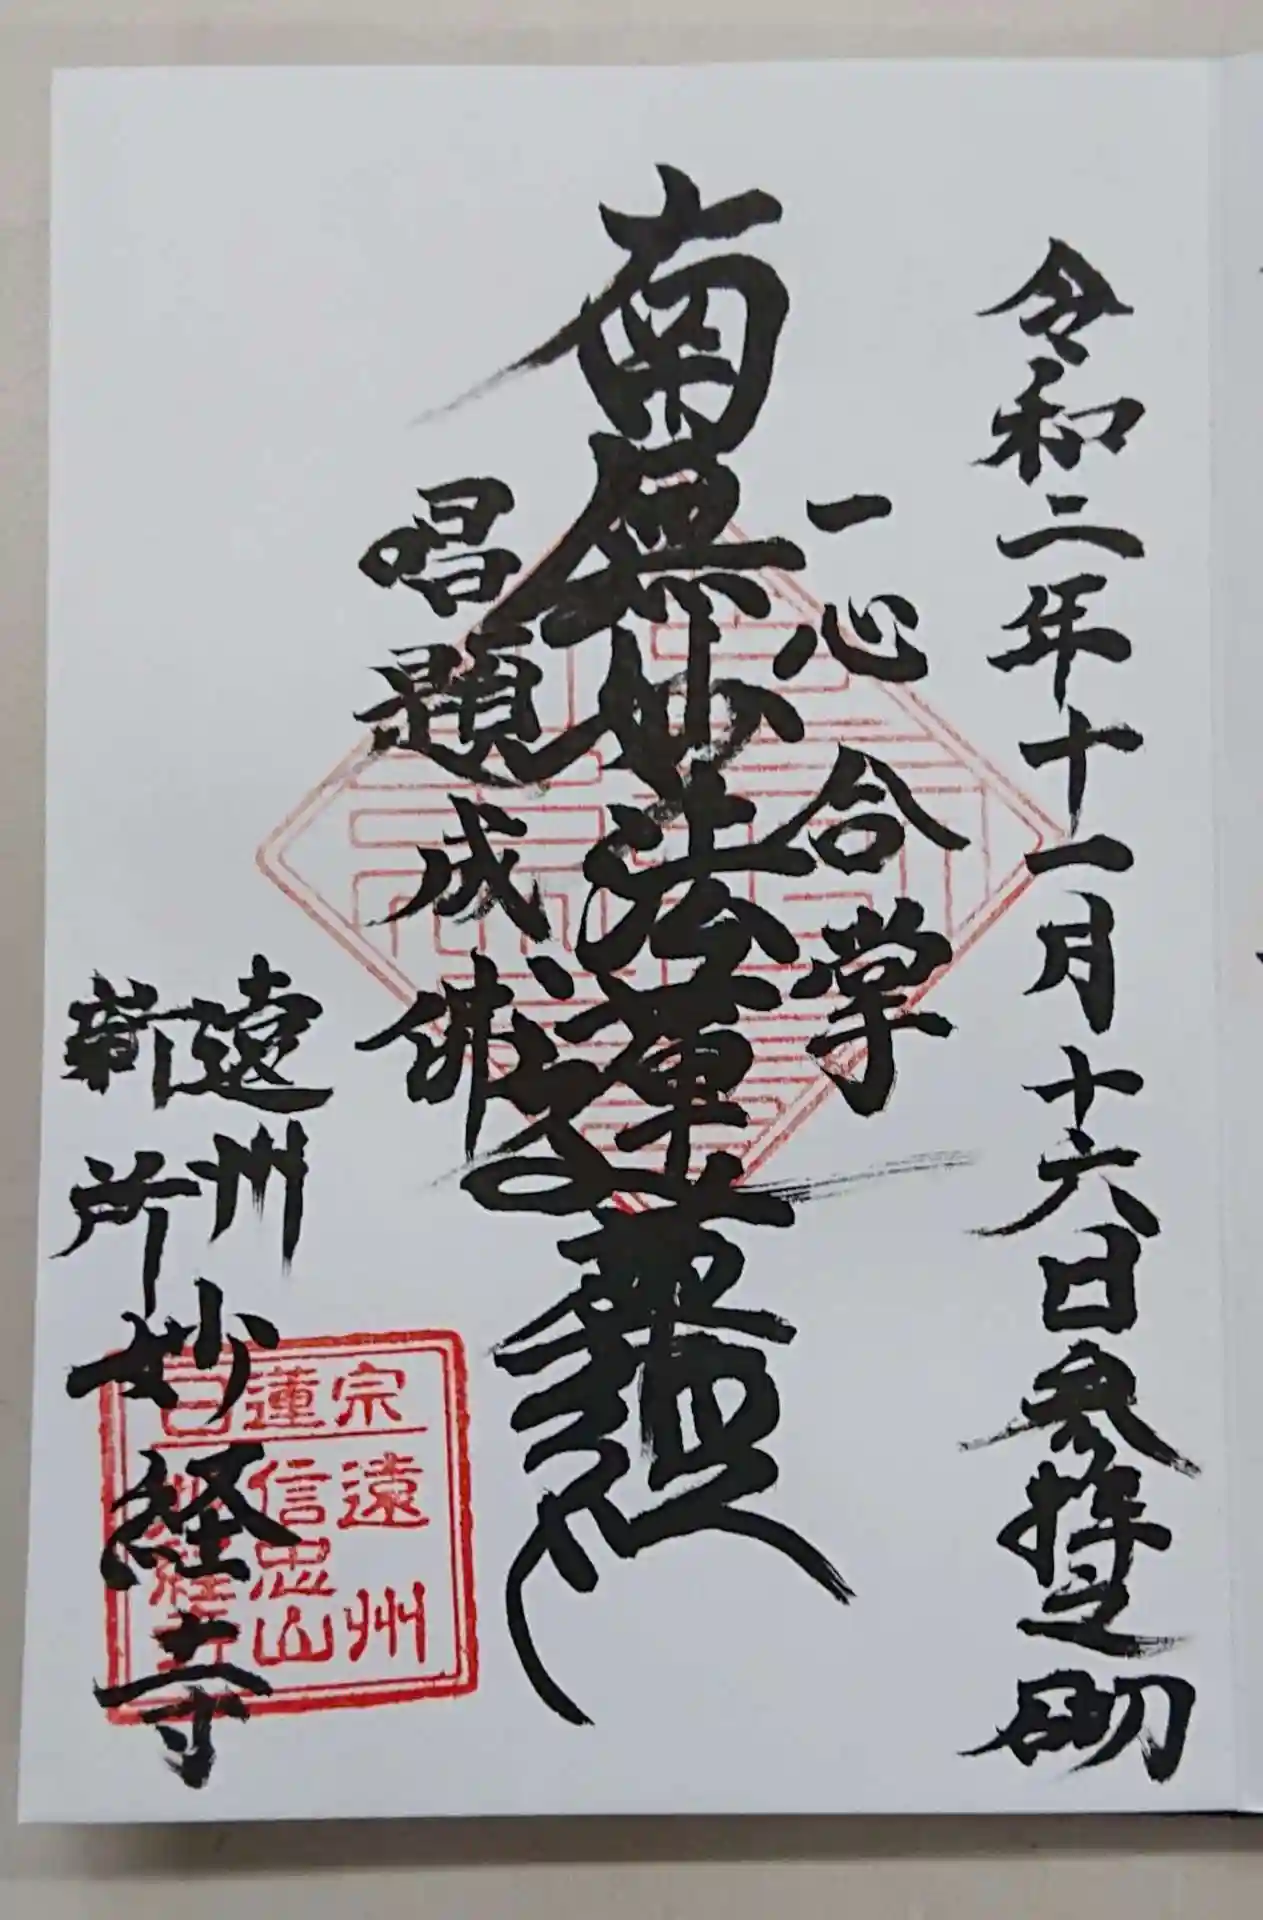 令和二年十一月十六日参拝之刻
一心合掌
南無妙法蓮華経
唱題成佛
遠州
新所妙経寺
日蓮宗
遠州
信忠山